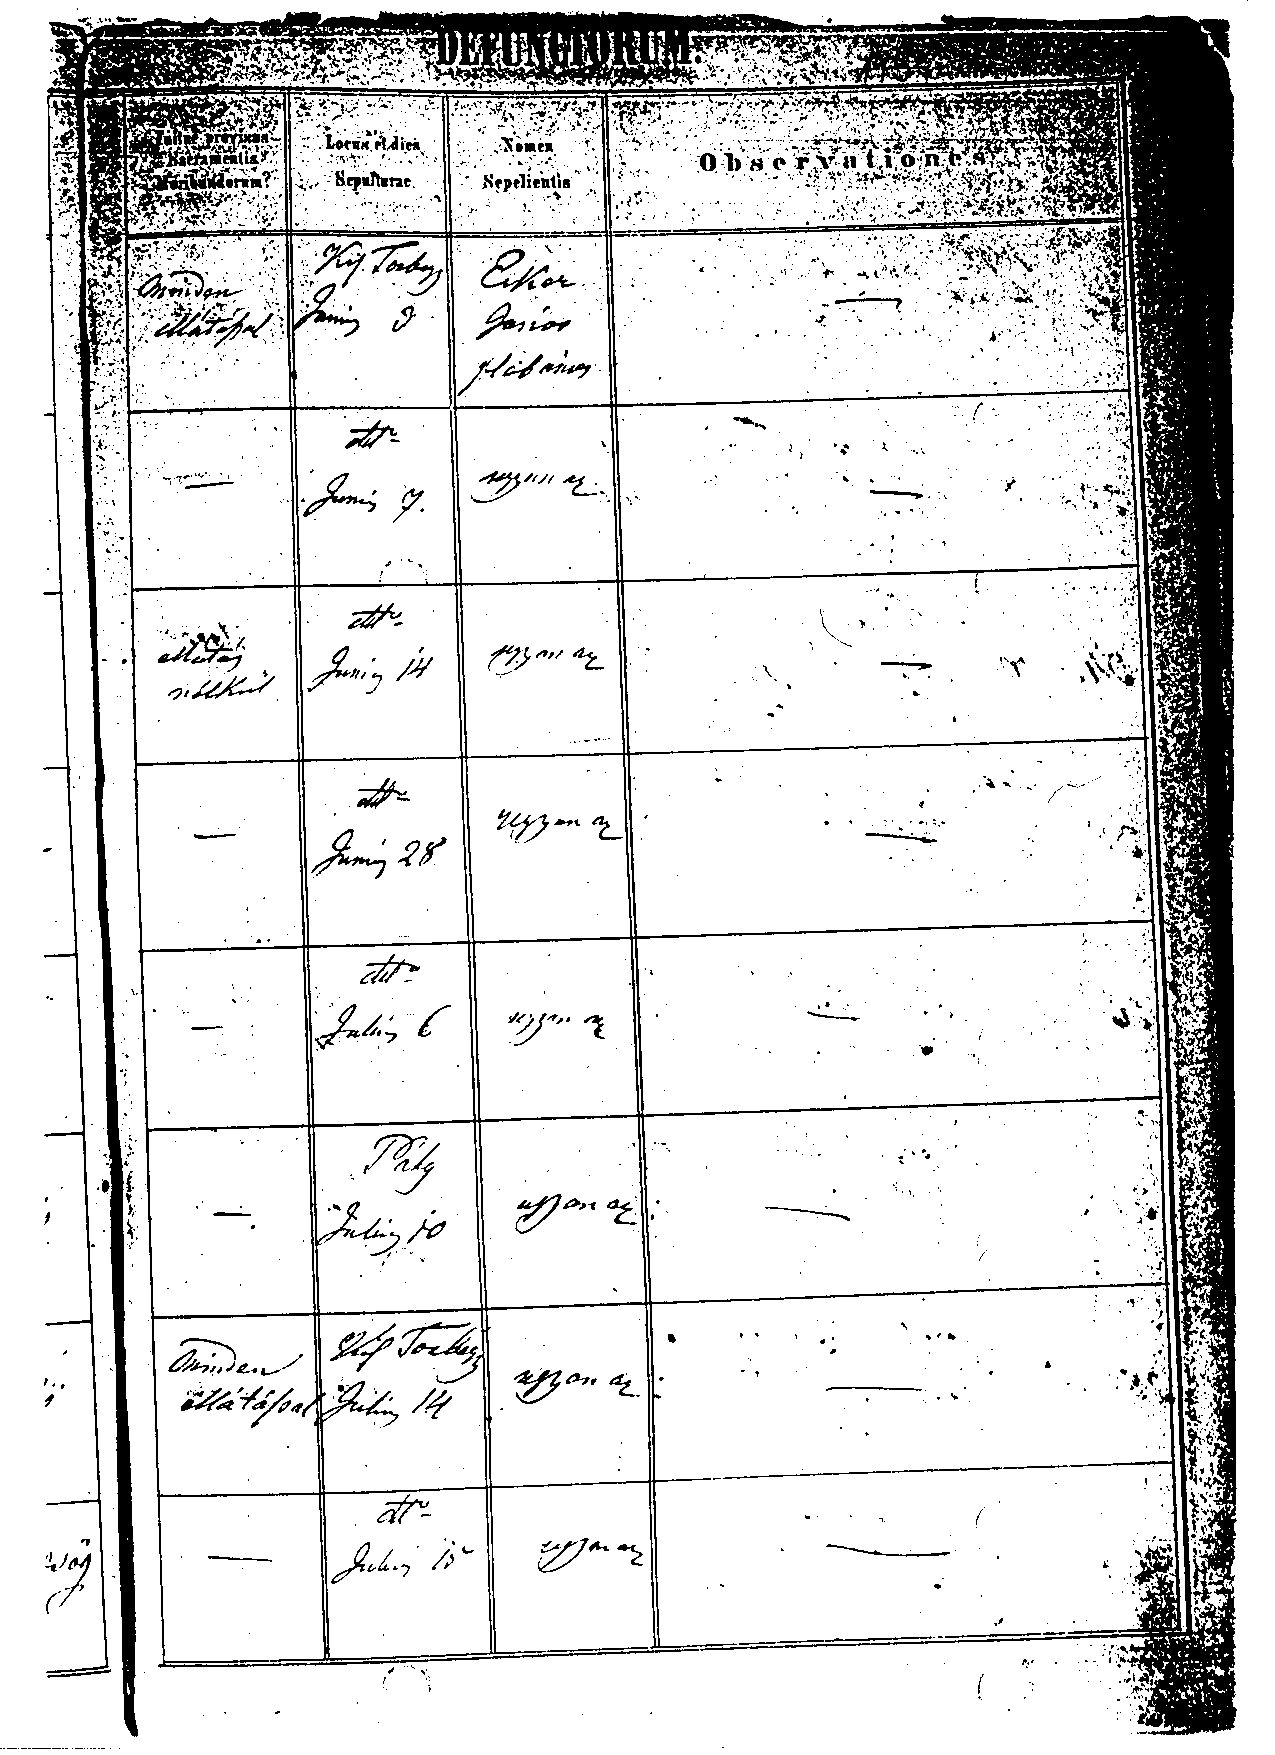 DEFUNCTORUM.
provisus Sacramentis Moribundorum?
Locus et dies Sepulturae
Nomen Sepelientis
Observationes
Minden ellátással
Kis Torbágy Junius 3
Eiker János plébános
—
dtto Junius 7.
ugyan az
—
ellátás nélkül
dtto Junius 14
ugyan az
—
—
dtto Junius 28
ugyan az
—
—
dtto Julius 6
ugyan az
—
—
Páty Julius 10
ugyan az
—
Minden ellátással
Kis Torbágy Julius 14
ugyan az
—
—
dtto Julius 15
ugyan az
—